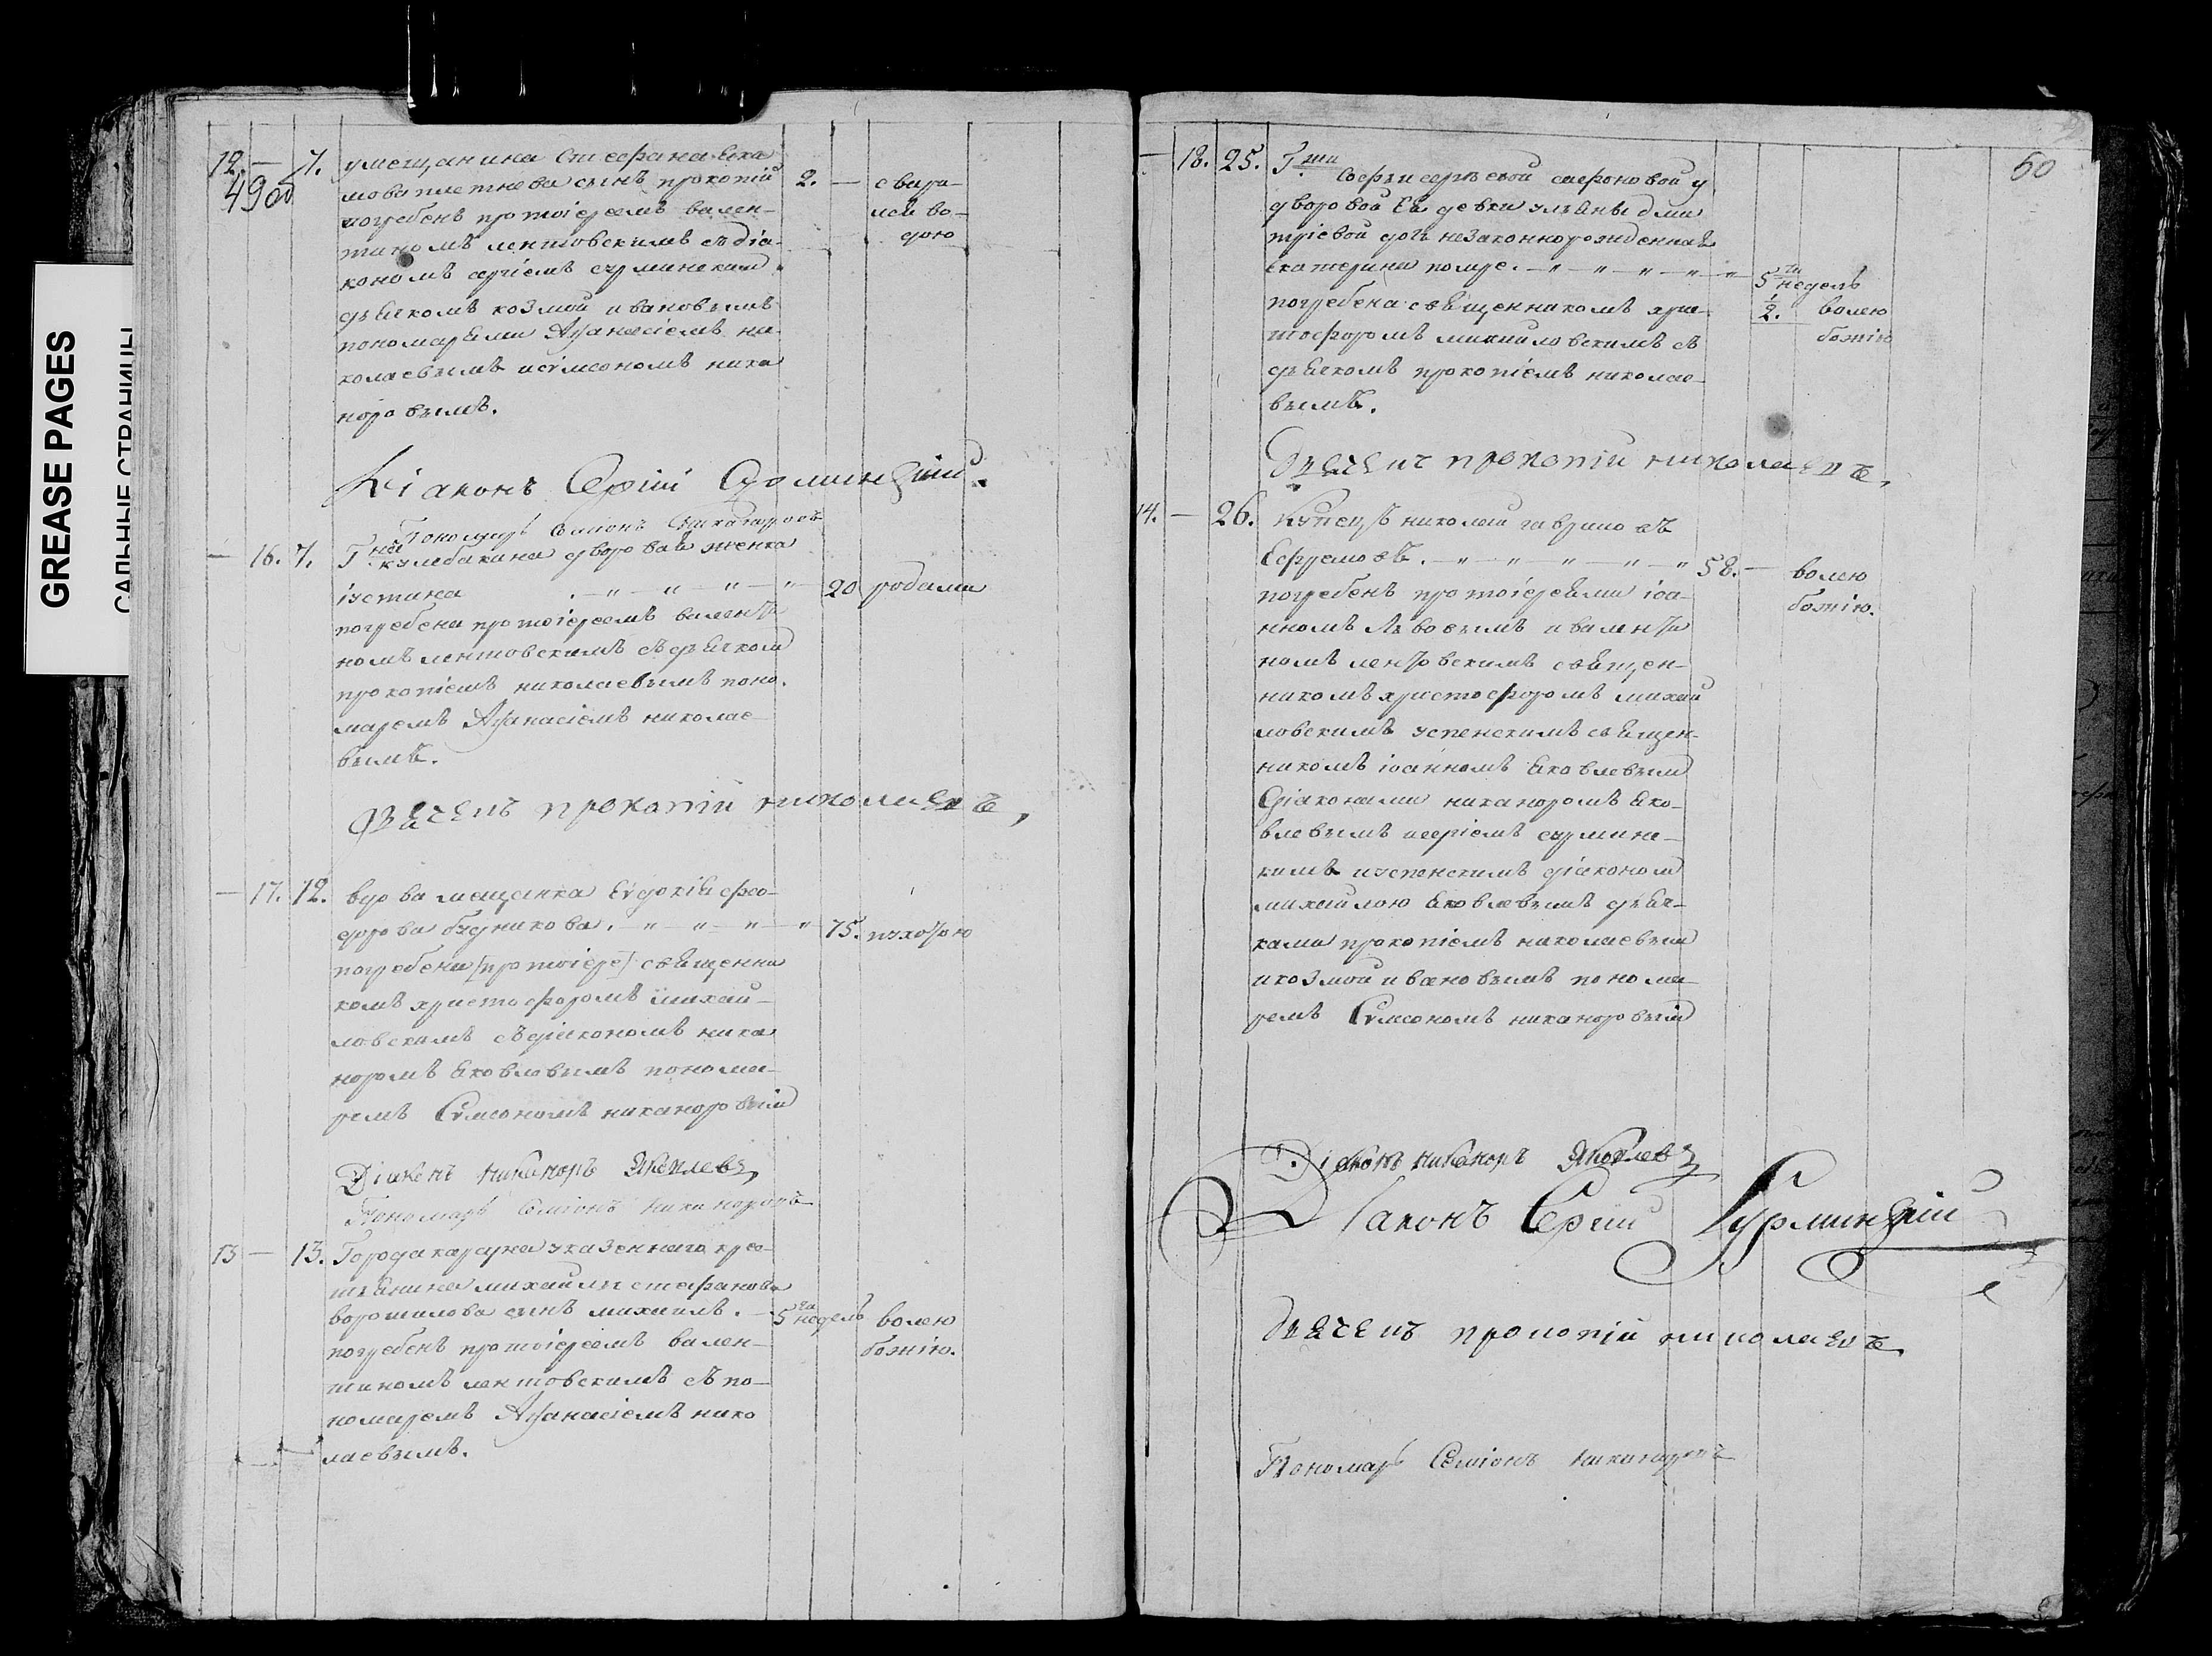 GREASE PAGES
САЛЬНЫЕ СТРАНИЦЫ
12. — 7. у мещанина Стефана Яки
49об
мова плетнева сынъ прокопій 2. — свари
погребенъ протоіереемъ вален- лей во-
тиномъ лентовскимъ съ діа- дою
кономъ сергіемъ сурминским
дьячкомъ козмой ивановымъ
пономарьми Афанасіемъ ни-
колаевымъ и симеономъ ника
норовымъ.
Діаконъ Сергій Сурминскій.
Пономарь Симионъ Никаноровъ
— 16. 7. Г.на кулебакина дворовая женка
іустина 20 родами
погребена протоіереемъ валенти
номъ лентовскимъ съ дьячком
прокопіемъ николаевымъ поно-
маремъ Афанасіемъ николае-
вымъ.
Дьячекъ прокопій николаевъ,
— 17. 12. вдова мещанка Евдокія фео-
дорова будникова. 75. чихотою
погребена (протоіере) священни
комъ христофоромъ михай-
ловскимъ съ діакономъ ника
норомъ яковлевымъ понома-
ремъ Симеономъ никаноровым
Діаконъ никаноръ Яковлевъ
Пономарь Семіонъ никаноровъ
13 — 13. Города карсуна указеннаго крес-
тьянина михайлы стефанова
ворошилова сынъ михаилъ. 5 недель волею
погребенъ протоіереемъ вален- божію.
тиномъ лентовскимъ съ по-
номаремъ Афанасіемъ нико
лаевымъ.
60
— 18. 25. Г.жи Софьи сергѣевой сафоновой у
дворовой Ея девки ульяны дми
тріевой дочь незаконнорожденная
екатерина помре. 5ти недель
погребена священникомъ хри- ½. волею
тофоромъ михайловскимъ съ божію
дьячкомъ прокопіемъ николае-
вымъ.
Дьячекъ прокопій николаевъ,
14. — 26. Купецъ николай гавриловъ
Ефремовъ. 58. — волею
погребенъ протоіереями іоа- божію.
нномъ Львовымъ и валенти
номъ лентовскимъ священ-
никомъ христофоромъ михай
ловскимъ успенскимъ священ-
никомъ іоанномъ яковлевым
діаконами никаноромъ яко-
влевымъ и сергіемъ сурминс-
кимъ и успенскимъ діаконом
михайлою яковлевымъ дьяч-
ками прокопіемъ николаевым
и козмой ивановымъ понома
ремъ Симеономъ никаноровым
Діаконъ никаноръ Яковлевъ
Діаконъ Сергій Сурминскій
Дьячекъ прокопій николаевъ,
Пономарь Семіонъ никаноровъ